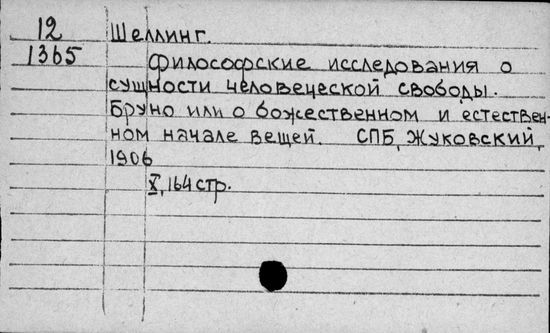 12 Шеллинг.
1365 Философские исследования о
сущности человеческой свободы.
Бруно или о божественном и естествен-
ном начале вещей. СПБ, Жуковский,
1906
X, 164 стр.